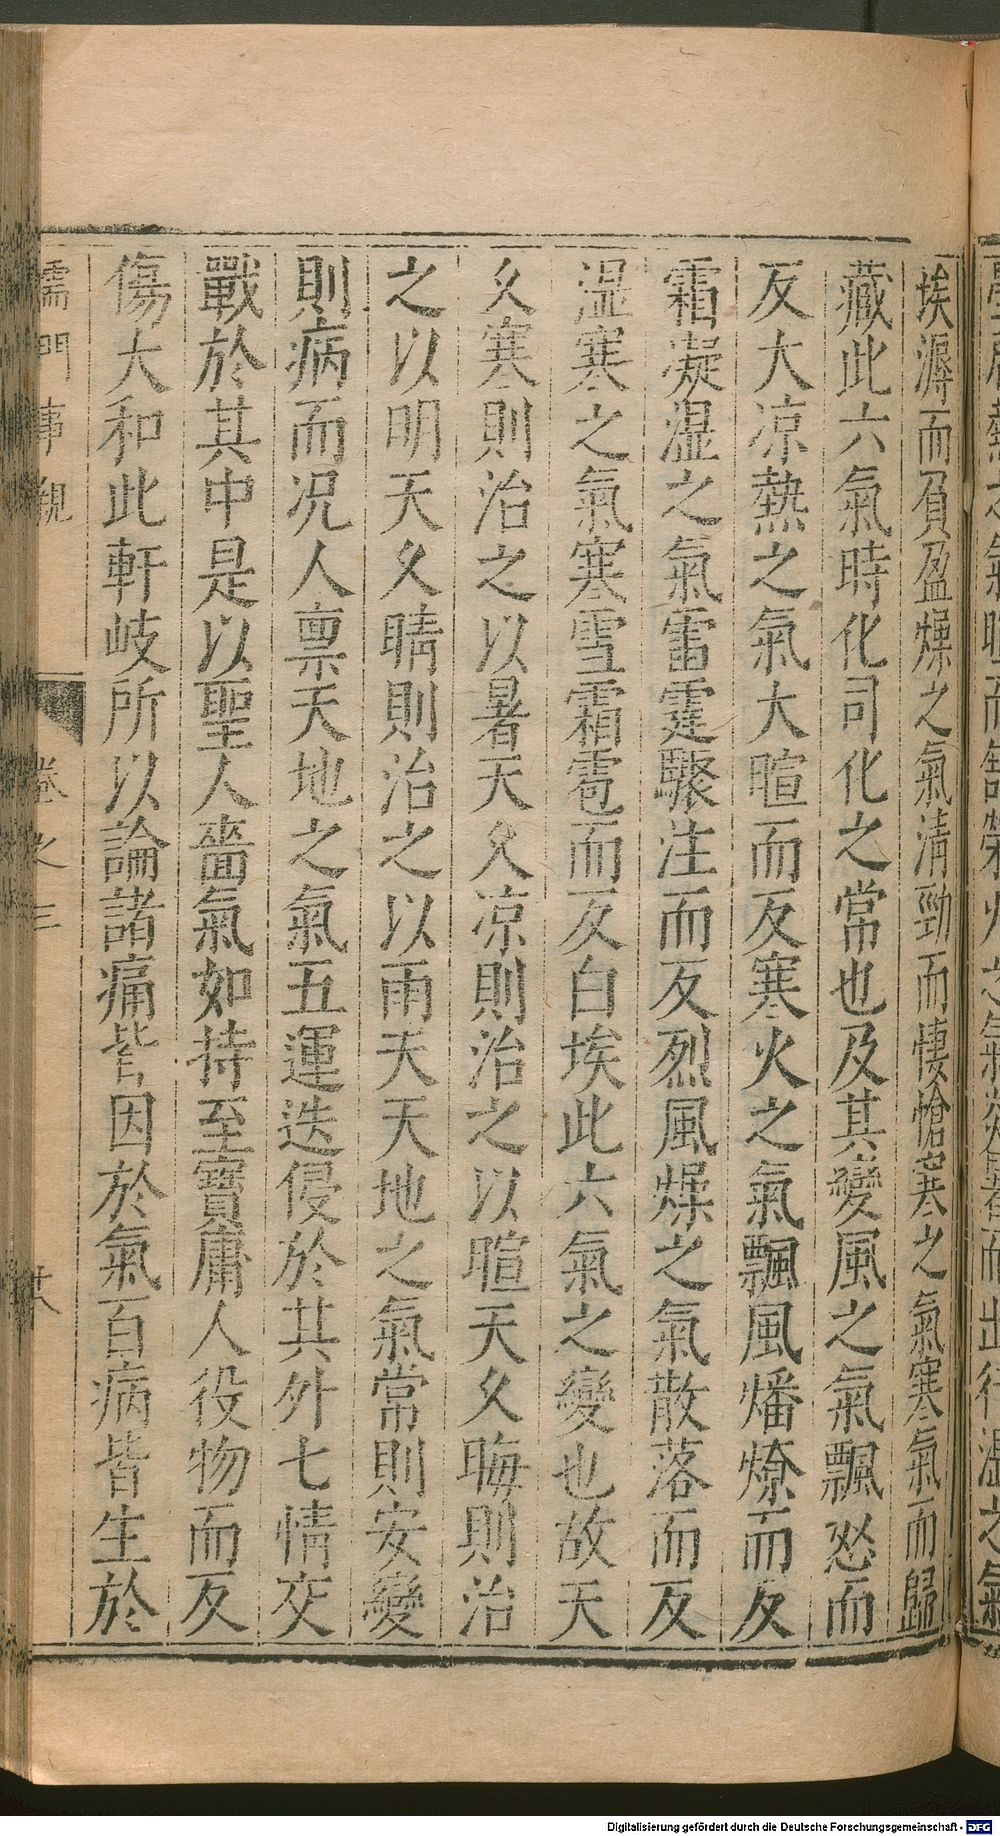 埃溽而員盈燥之氣清勁而悽愴寒之氣寒氣而歸
藏此六氣時化司化之常也及其變風之氣飄怒而
反大凉熱之氣大暄而反寒火之氣飄風燔燎而反
霜凝濕之氣雷霆驟注而反烈風燥之氣散落而反
濕寒之氣寒雪霜雹而反白埃此六氣之變也故天
久寒則治之以暑天久凉則治之以暄天久晦則治
之以明天久晴則治之以雨夫天地之氣常則安變
則病而况人禀天地之氣五運迭侵於其外七情交
戰於其中是以聖人嗇氣如持至寶庸人役物而反
傷大和此軒岐所以論諸痛皆因於氣百病皆生於
儒門事親
卷之三
廿八
Digitalisierung gefördert durch die Deutsche Forschungsgemeinschaft - DFG